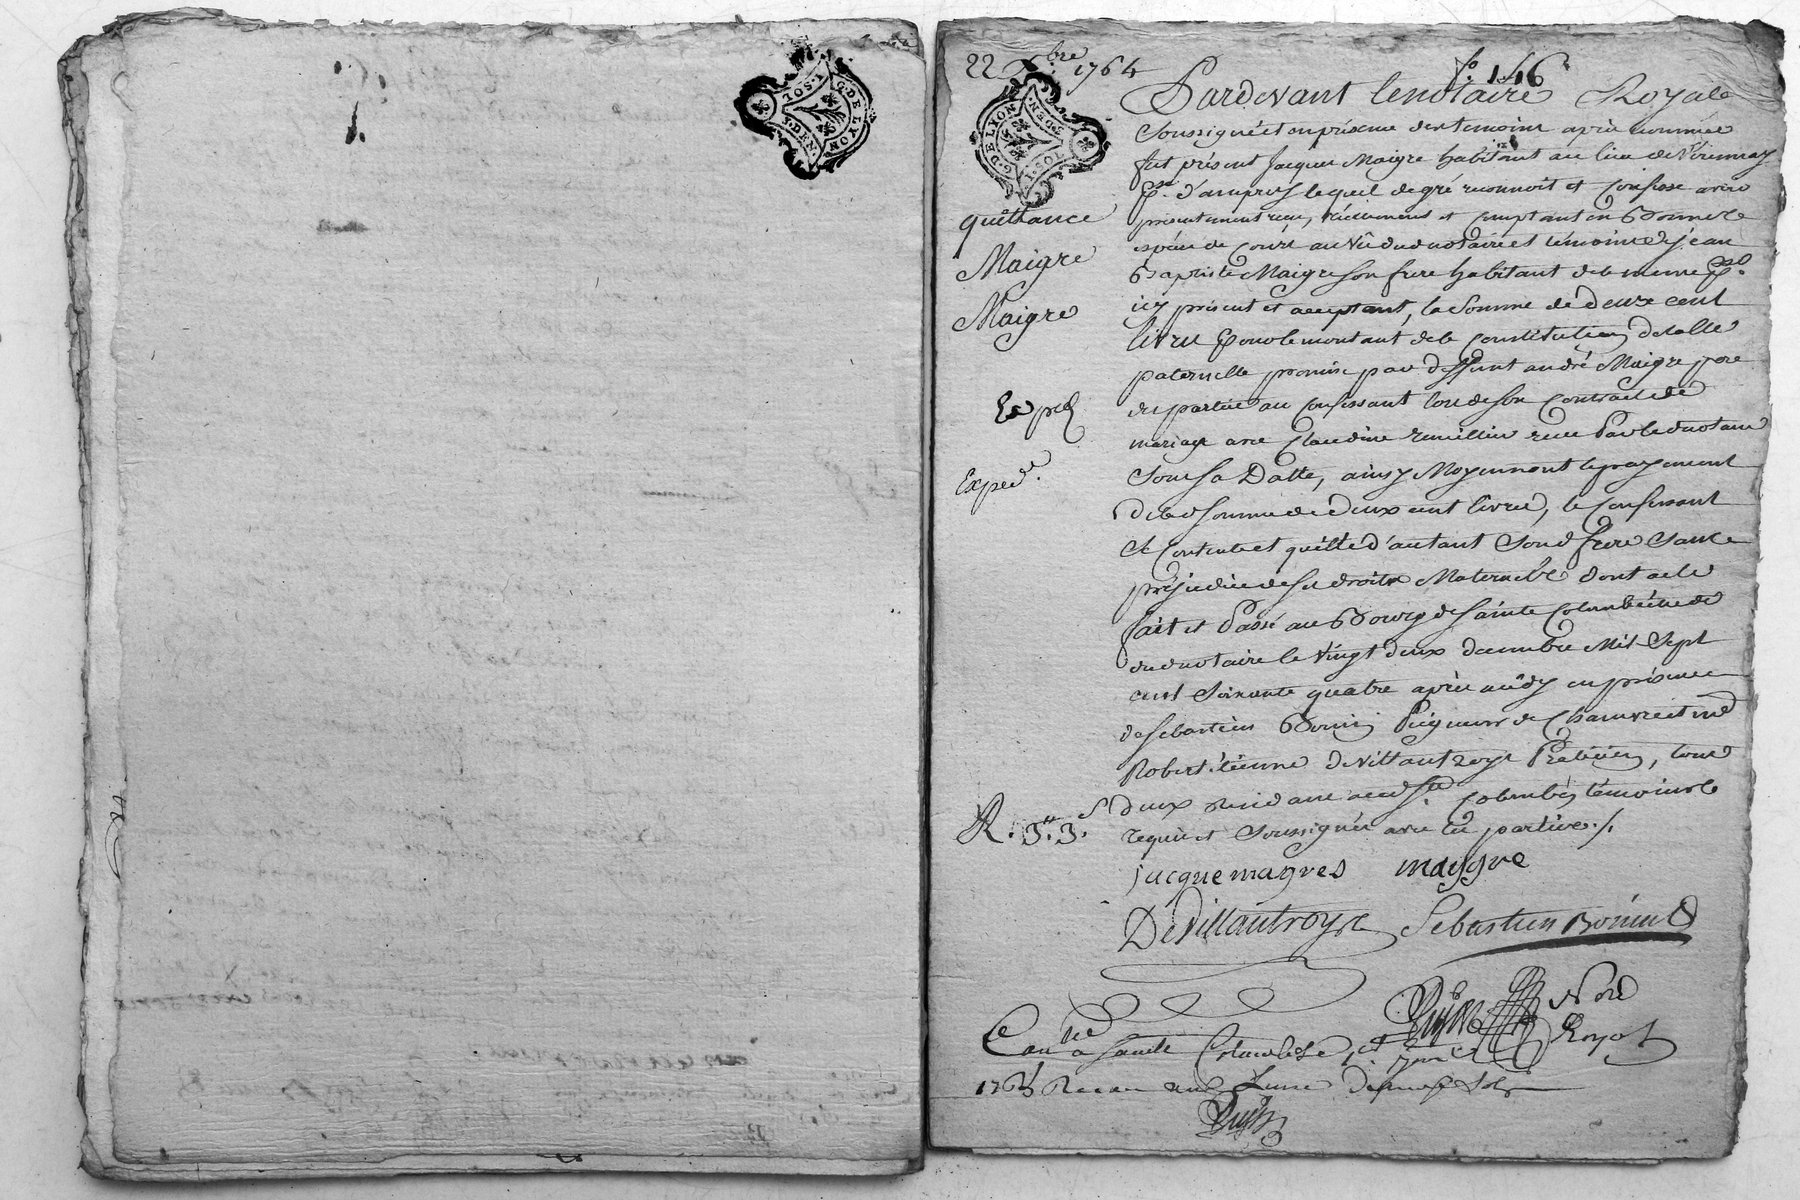 1 SOL.
J.DEN.
G.DE LYON
22 Xbre 1764
fo. 116
G.DE LYON
5.DEN.
1.SOL
quittance
Maigre
Maigre
Expéd.e
R. 3.
Pardevant le notaire Royale
Soussigné et en présence des temoins après nommés
fut présent Jacques Maigre habitant au lieu de
psse. d'ampuis lequel de gré reconnoit et confesse avoir
présentement reçu, réellement et comptant en Bonnes
espèce de Cours au vû dud notaire et témoins de jean
Baptiste Maigre son frere habitant de la meme psse.
icy présent et acceptant, la Somme de deux cent
livres pour le montant de la Constitution
paternelle promise par deffunt andré Maigre pere
des parties au confessant lors de son Contract de
mariage avec Claudine recu Par led notaire
Sous sa Datte, ainsy Moyennant le payement
de lad somme de deux cent livres, le Confessant
Se Contente et quitte d'autant Sond frere Sans
préjudice de ses droits Maternels dont acte
fait et Passé au Bourg de Sainte Colombe étude
dud notaire le vingt deux decembre Mil Sept
cent Soixante quatre après midy en présence
de Sebastien Bonin Peigneur de Chanvre et me
Robert étienne deVillantroye Praticien, tous
deux résidans aud Ste. Colombe, témoins
requis et Soussignés avec les parties ./.
jacque magres maygre
DeVillantroye Sebastien Bonin
Nore
Royal
Con.lé a Sainte Colombe, le janvier
1765 Receu une Livre sols